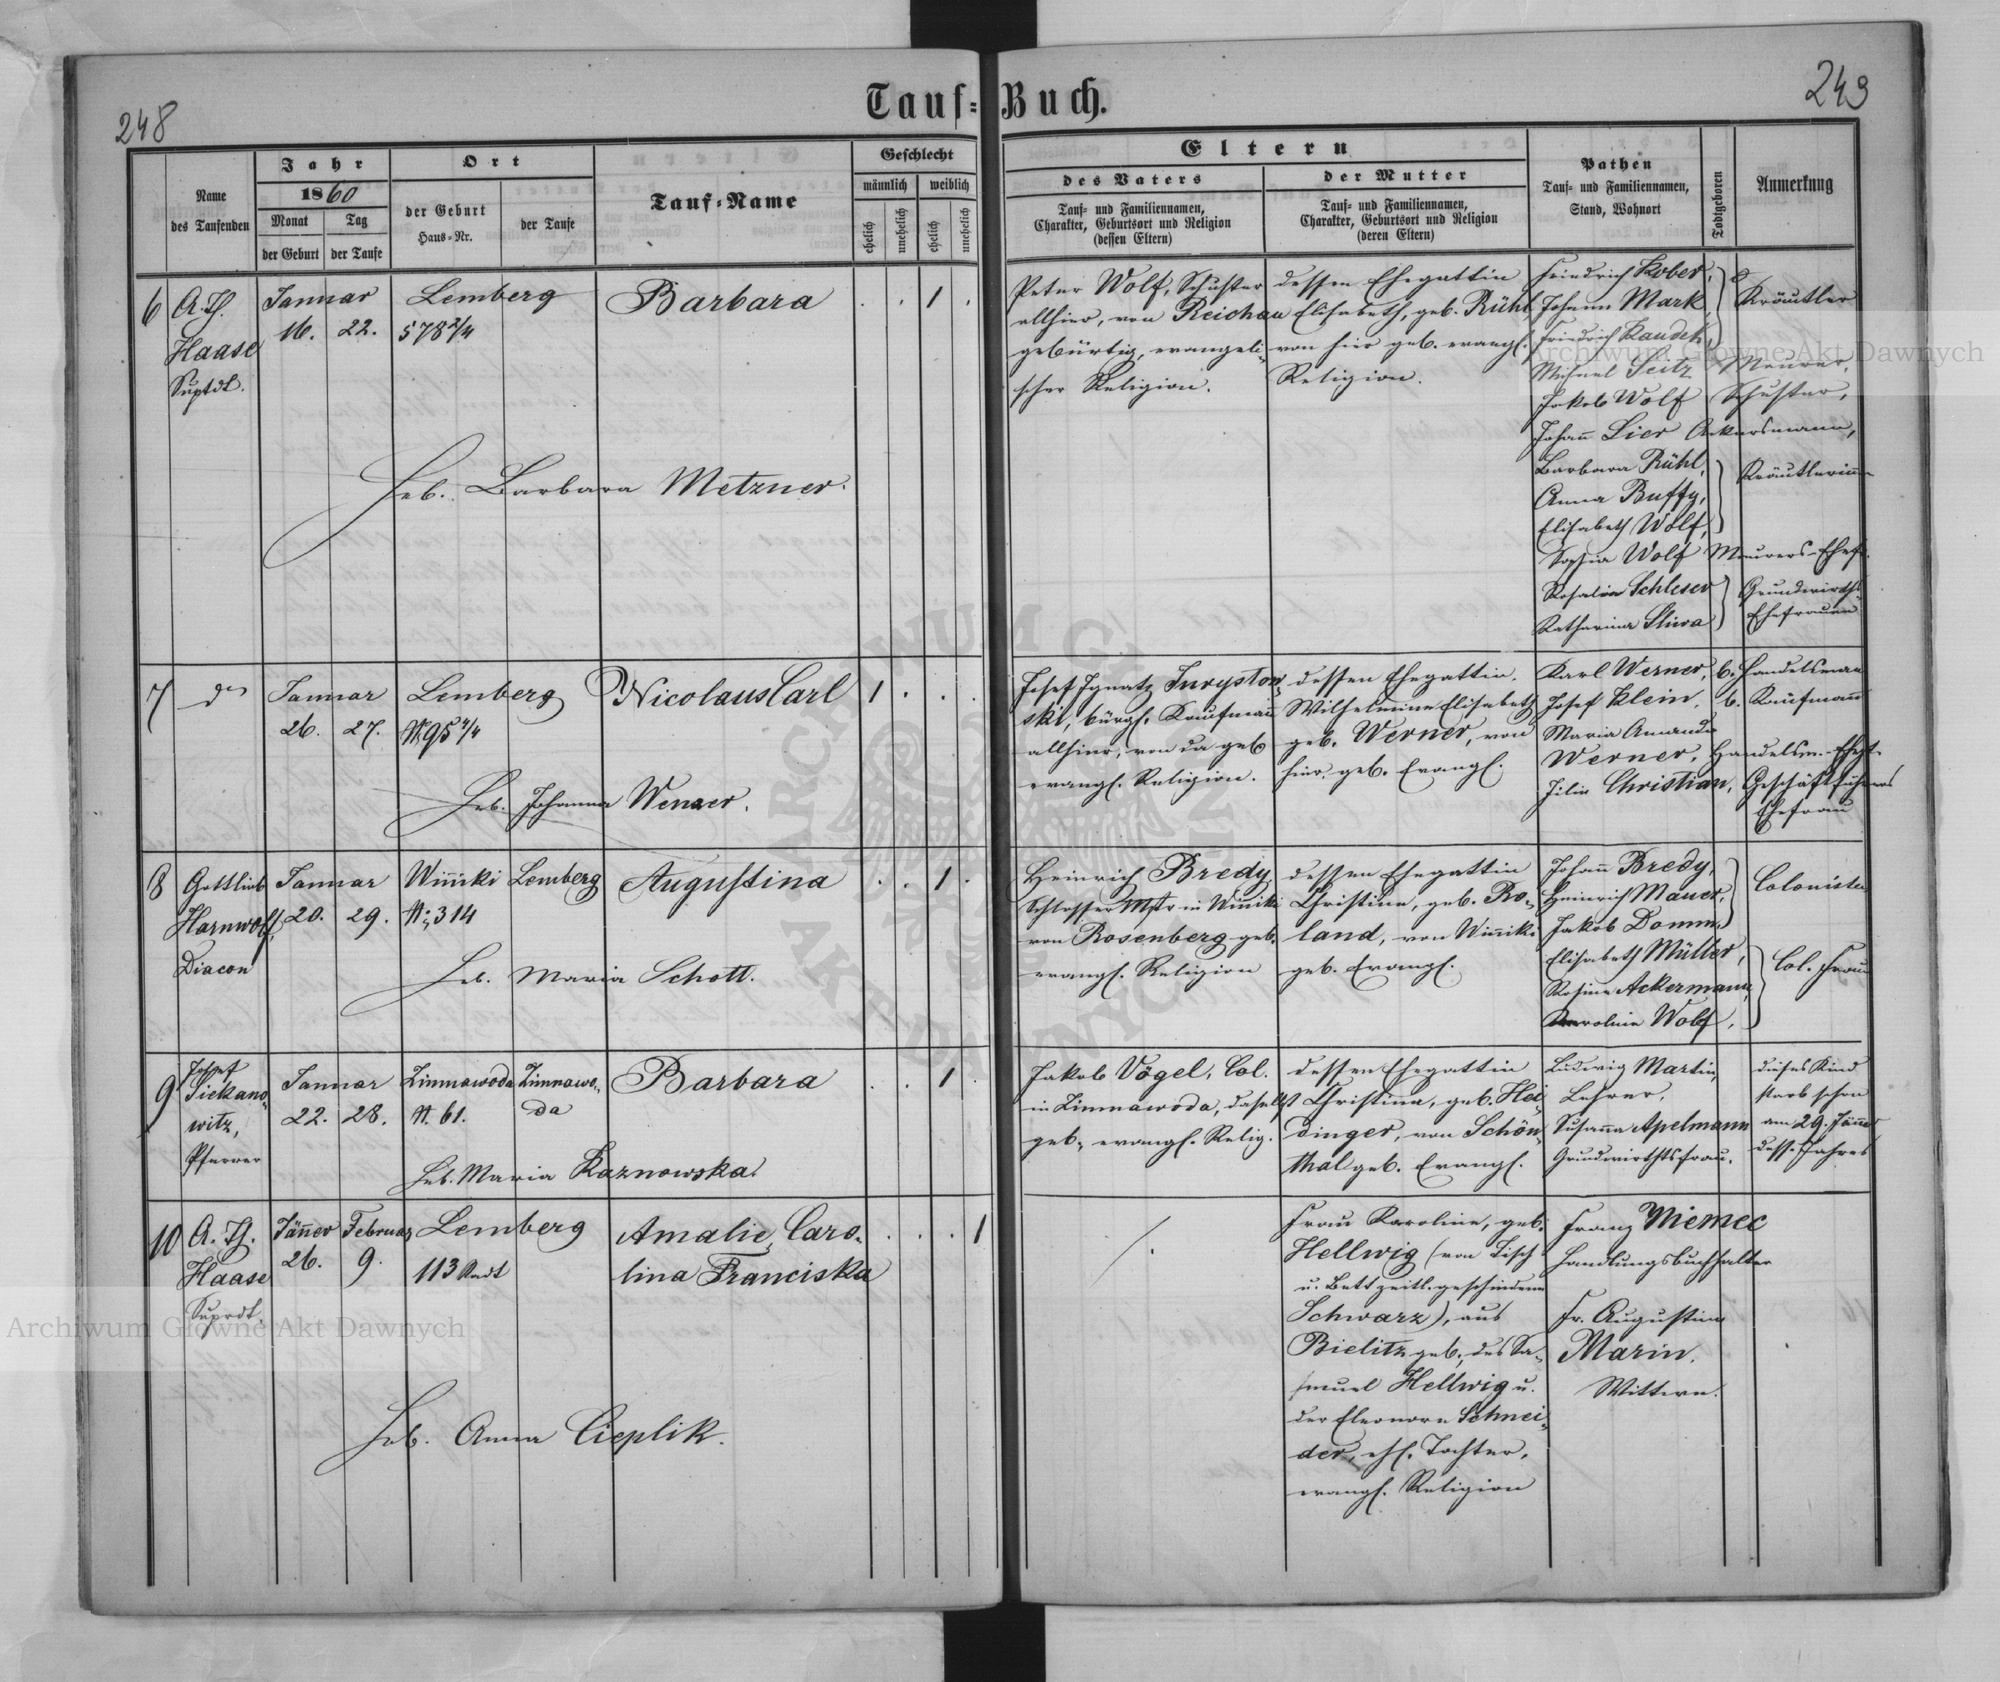 248
Tauf-Buch.
249
Name
des Taufenden
Jahr
1860
Monat
Tag
der Geburt
der Taufe
Ort
der Geburt
Haus-Nr.
der Taufe
Tauf-Name
Geschlecht
männlich
weiblich
ehelich
unehelich
ehelich
unehelich
Eltern
des Vaters
Tauf- und Familiennamen,
Charakter, Geburtsort und Religion
(dessen Eltern)
der Mutter
Tauf- und Familiennamen,
Charakter, Geburtsort und Religion
(deren Eltern)
Pathen
Tauf- und Familiennamen,
Stand, Wohnort
Todtgeboren
Anmerkung
6
A. Th.
Haase
Suptdt.
Januar
16. 22.
Lemberg
578 2/4
Barbara
1
Heb. Barbara Metzner.
Peter Wolf, Schuster
allhier, von Reichau
gebürtig, evangeli-
scher Religion.
dessen Ehegattin
Elisabeth, geb. Rühl
von hier geb. evangl.
Religion.
Friedrich Kober,
Johann Mark
Friedrich
Kräutler
Michael Seitz Meurer,
Jakob Wolf Schuster,
Johann Lier Ackersmann,
Barbara Rühl,
Anna Buffy,
Elisabeth Wolf,
Kräutlerinn
Sophia Wolf Meurers-Ehef.
Rosalia Schleser
Katharina Sliwa
Grundwirths-
Ehefrauen
7
dto
Januar
26. 27.
Lemberg
N 95 4/4
Nicolaus Carl
1
Heb. Johanna Wenzer.
Josef Ignatz
ski, bürgl. Kaufmann
allhier, von da geb
evangl. Religion.
dessen Ehegattin.
Wilhelmine Elisabeth
geb. Werner, von
hier. geb. Evangl.
Karl Werner, b. Handelsman
Josef Klein, b. Kaufmann
Maria Amanda
Werner, Handelsm.-Ehegt.
Julia Christian, Geschäftsführers
Ehefrau
8
Gottlieb
Harnwolf,
Diacon
Januar
20. 29.
Winniki
N: 314
Lemberg
Augustina
1
Heb. Maria Schott.
Heinrich Bredy,
Schlosser Mstr in Winniki
von Rosenberg geb.
evangl. Religion
dessen Ehegattin
Christine, geb. Ro-
land, von Winniki
geb. Evangl.
Johann Bredy,
Heinrich Mauer,
Jakob Domm,
Colonisten
Elisabeth Müller,
Rosina Ackermann,
Karoline Wolf,
Col. Frauen
9
Josef
Siekano-
witz,
Pfarrer
Januar
22. 28.
Zimnawoda
N. 61.
Zimnawo-
da
Barbara
1
Heb. Maria Kaznowska.
Jakob Vogel, Col.
in Zimnawoda, daselbst
geb, evangl. Relig.
dessen Ehegattin
Christina, geb. Hei-
dinger, von Schön-
thal geb. Evangl.
Ludwig Martin,
Lehrer,
Susanna Apelmann
Grundwirthsfrau.
dieses Kind
starb schon
am 29. Jänner
dess. Jahres
10
A. Th.
Haase
Suprdt.
Jänner
26.
Februar
9.
Lemberg
113 Stadt
Amalie, Caro-
lina Franciska
1
Heb. Anna Cieplik.
Frau Karoline, geb.
Hellwig (von Tisch
u. Bett zeitl. geschiedene
Schwarz), aus
Bielitz geb., des Sa-
muel Hellwig u.
der Eleonora Schnei-
der, ehl. Tochter,
evangl. Religion
Franz Niemec
Handlungsbuchhalter
Fr. Augustina
Marin.
Wittwe.
Archiwum Główne Akt Dawnych
Archiwum Główne Akt Dawnych